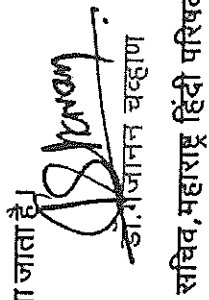 जाता है।
डा. गजानन चव्हाण
सचिव, महाराष्ट्र हिंदी परिषद